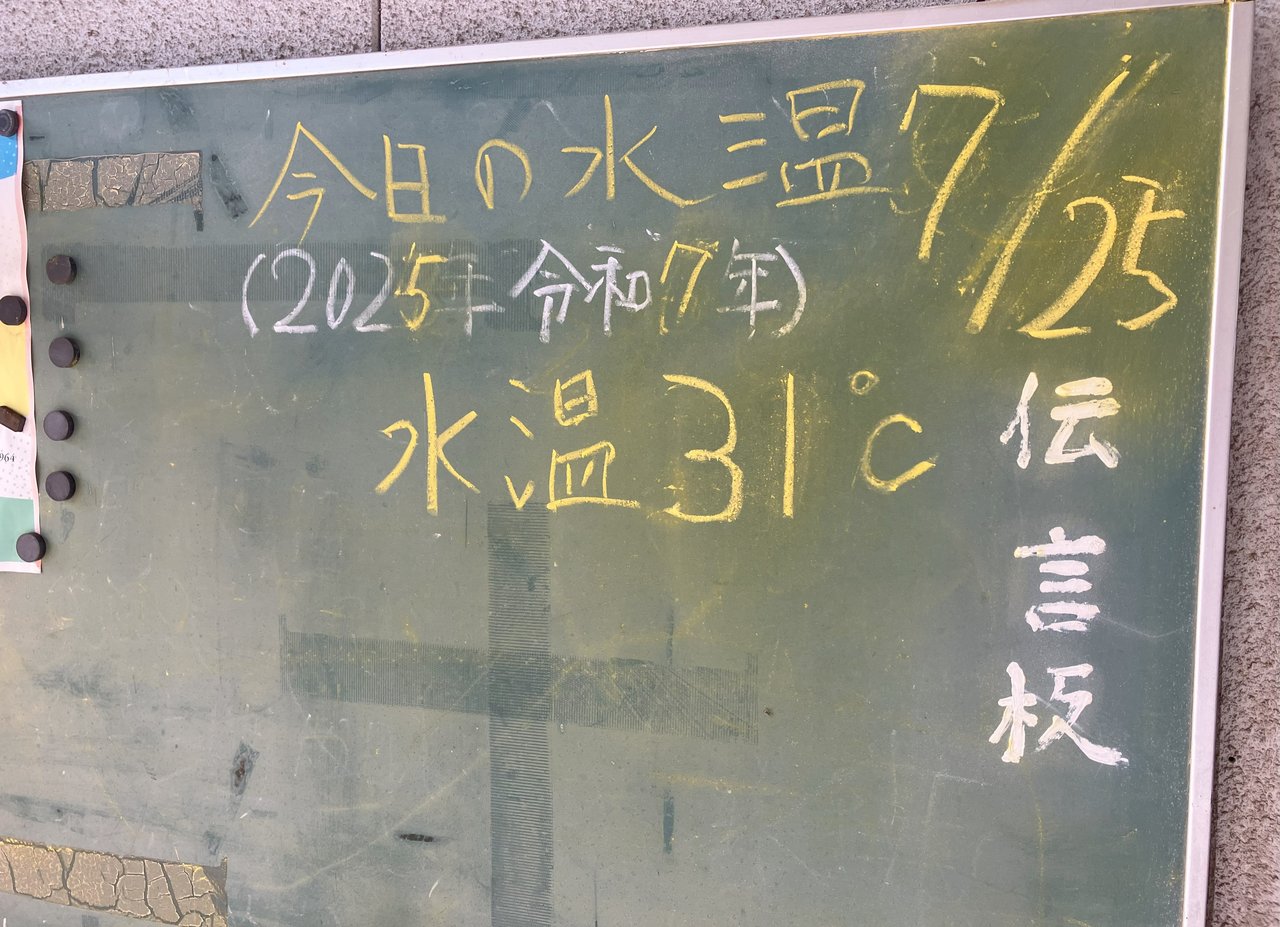 今日の水温 7/25
(2025年 令和7年)
水温 31℃
伝言板
964